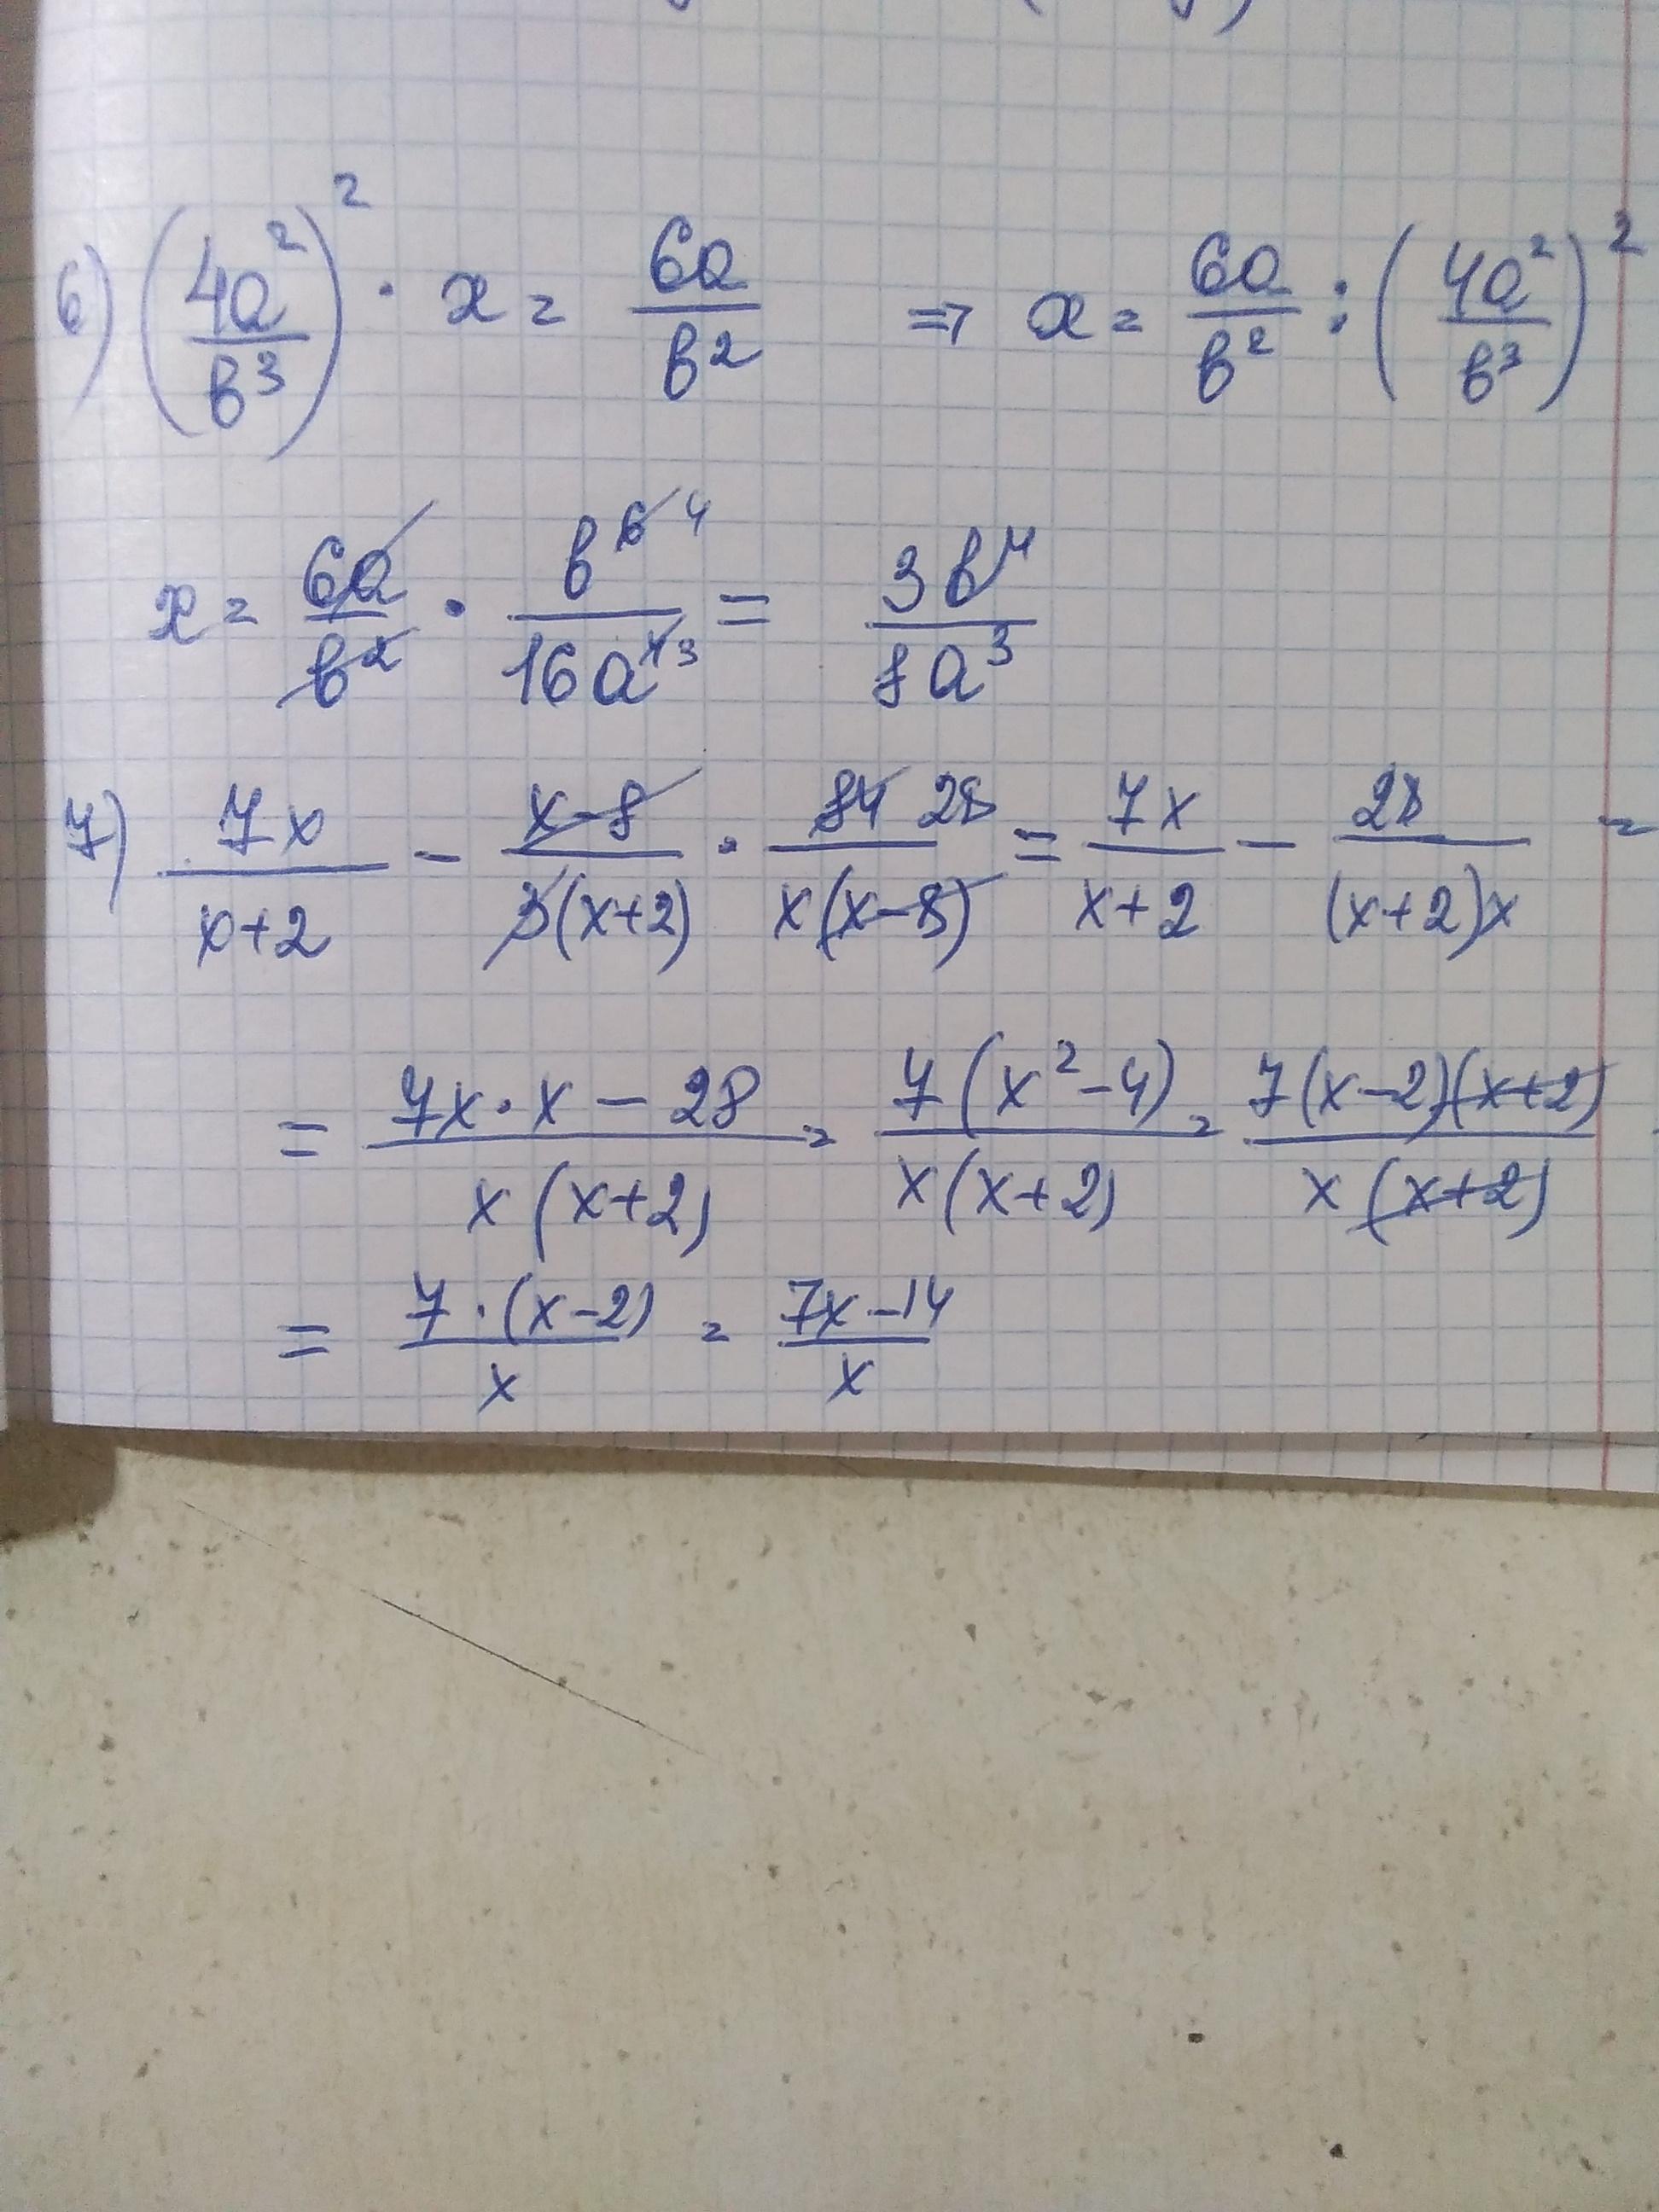 6) (4a²/b³)² · x = 6a/b² ⇒ x = 6a/b² : (4a²/b³)²
x = 6a/b² · b⁶ ⁴/16a⁴ ³ = 3b⁴/8a³
7) 7x/x+2 - x-8/3(x+2) · 84 28/x(x-8) = 7x/x+2 - 28/(x+2)x =
= 7x·x-28/x(x+2) = 7(x²-4)/x(x+2) = 7(x-2)(x+2)/x(x+2)
= 7·(x-2)/x = 7x-14/x